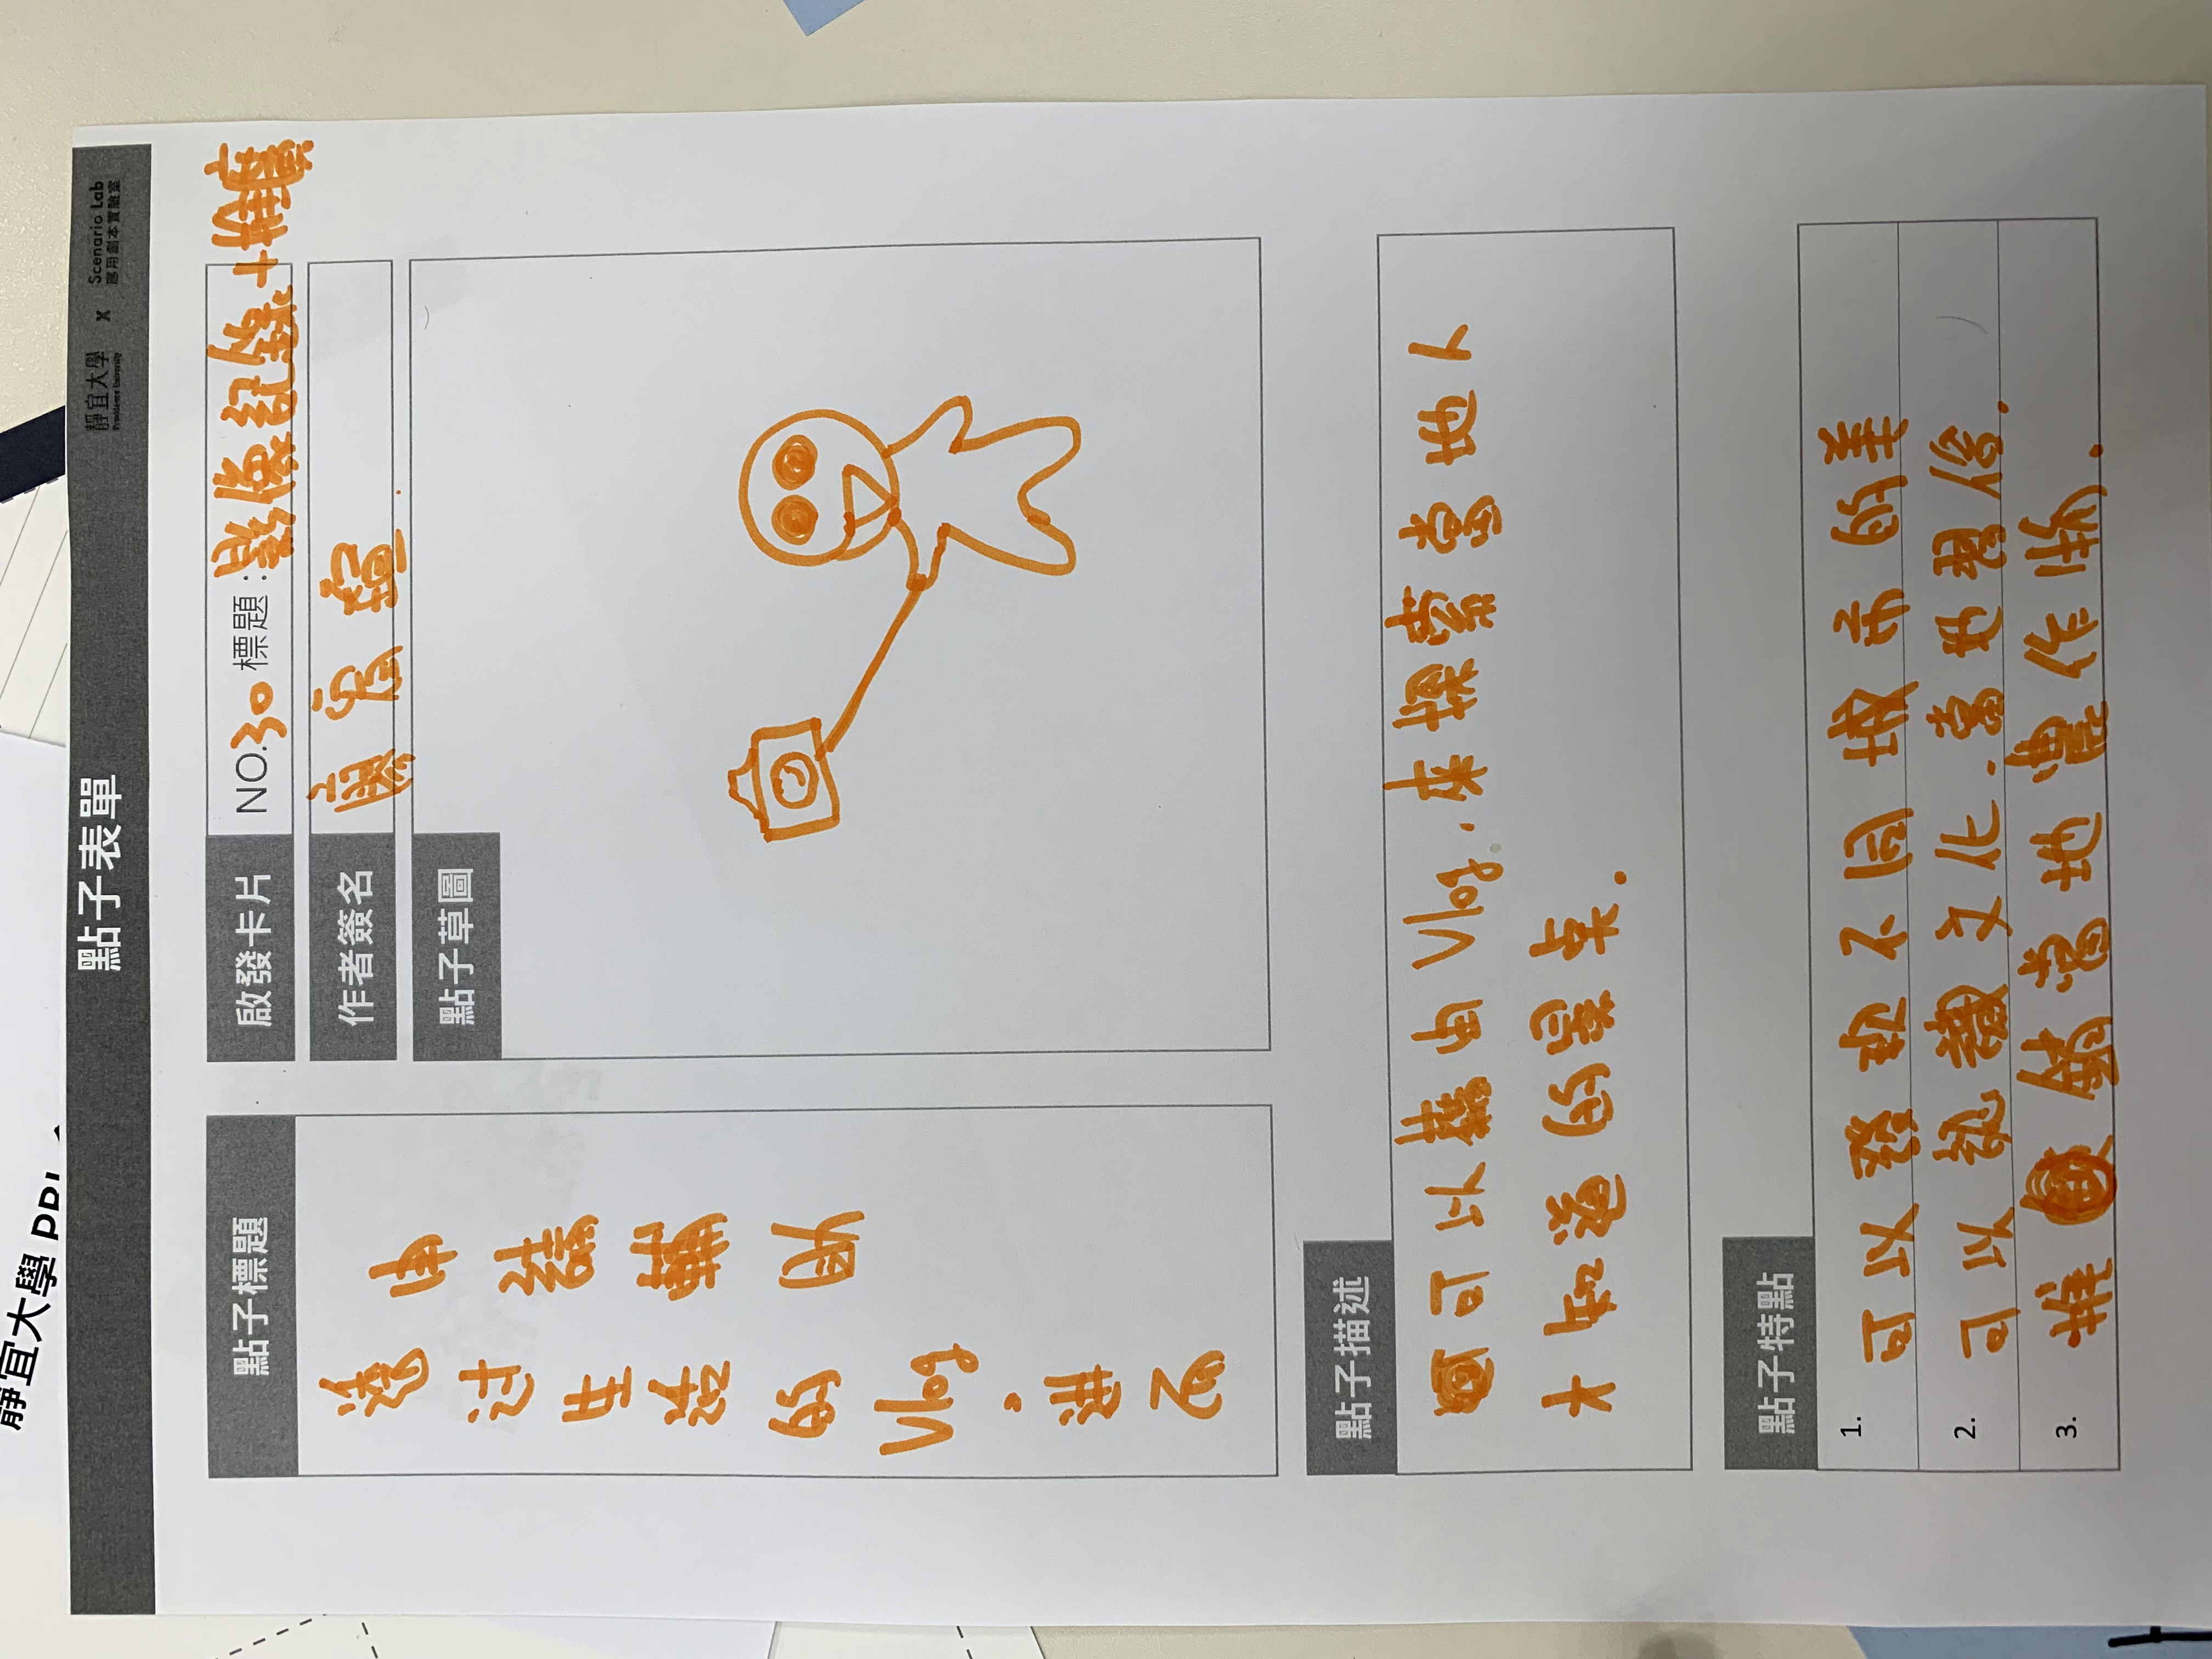 靜宜大學 PBL
點子表單
靜宜大學 x Scenario Lab
Providence University 應用劇本實驗室
點子標題
透过生活的Vlog，进而
申請補助
啟發卡片 NO.30 標題：影像記錄+推廣
作者簽名 廖宥
點子草圖
點子描述
可以藉由Vlog，來探索當地人
才知道的景點.
點子特點
1. 可以發現不同城市的美
2. 可以認識文化，當地習俗.
3. 推銷當地農作物.